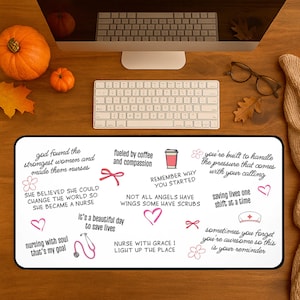 god found the
strongest women and
made them nurses
fueled by coffee
and compassion
REMEMBER WHY
YOU STARTED
you're built to handle
the pressure that comes
with your calling
SHE BELIEVED SHE COULD
CHANGE THE WORLD SO
SHE BECAME A NURSE
NOT ALL ANGELS HAVE
WINGS SOME HAVE SCRUBS
saving lives one
shift at a time
it's a beautiful day
to save lives
nursing with soul
that's my goal
NURSE WITH GRACE I
LIGHT UP THE PLACE
sometimes you forget
you're awesome so this
is your reminder